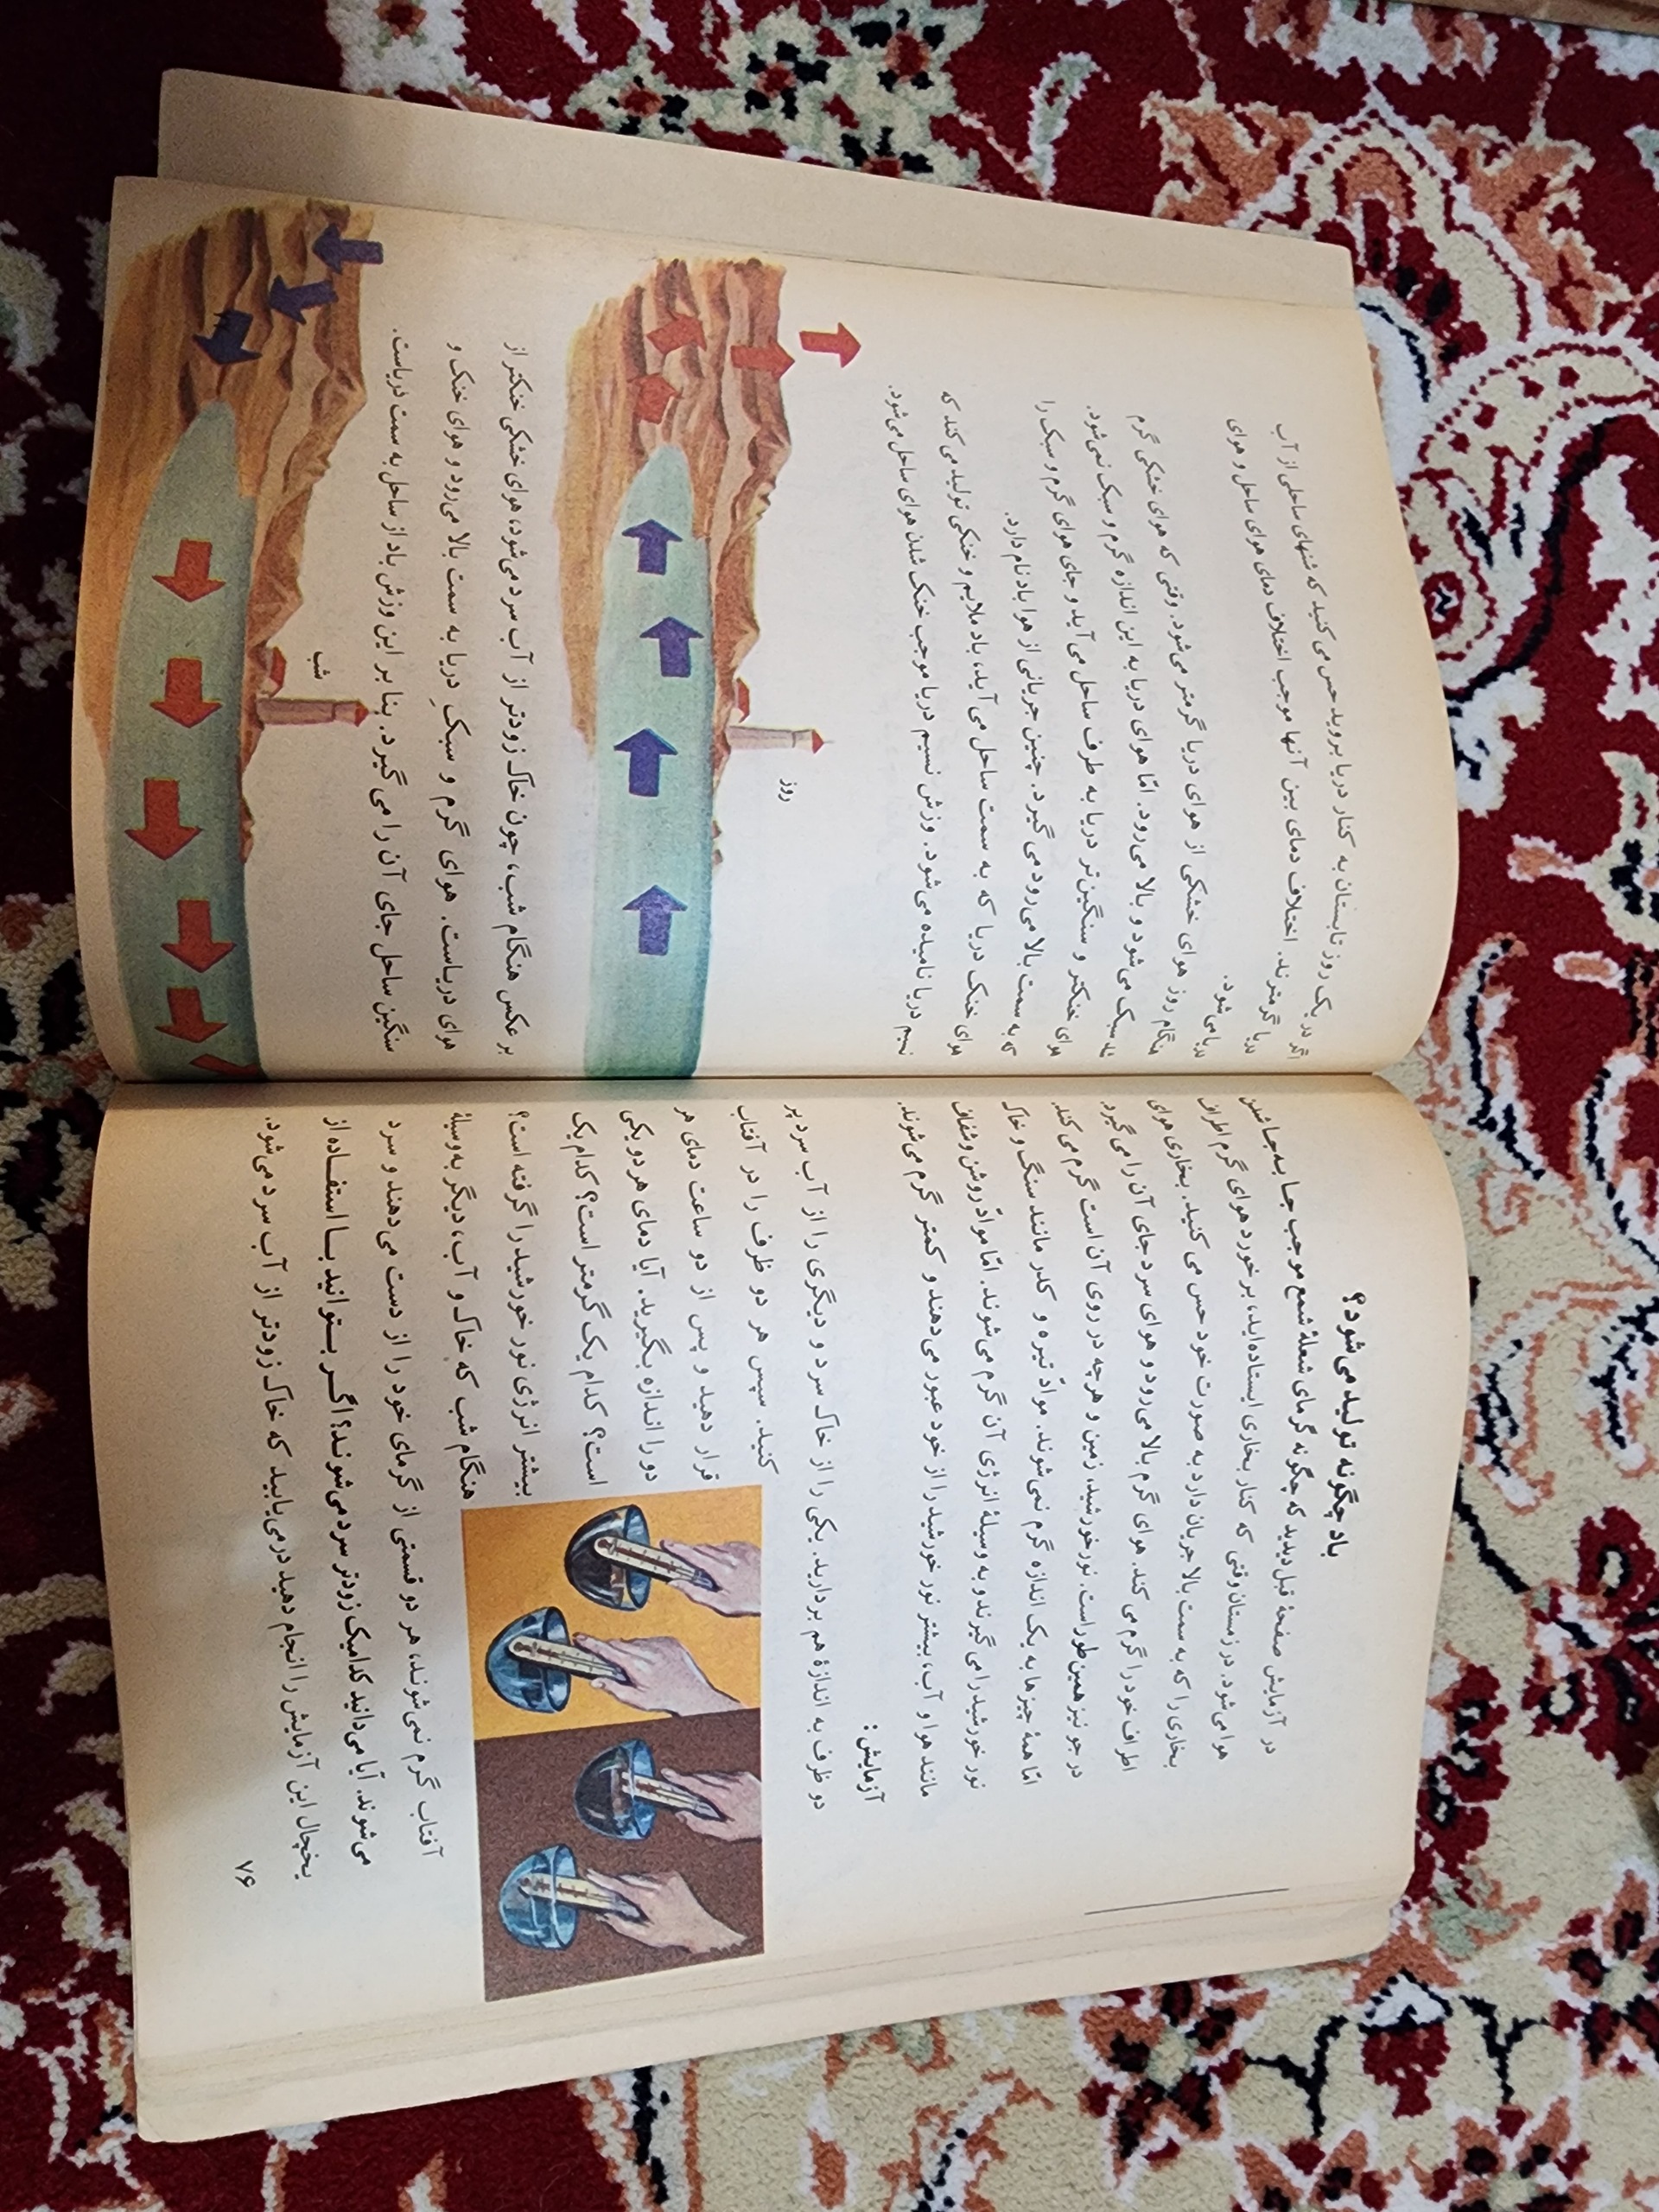 باد چگونه تولید می‌شود؟
در آزمایش صفحهٔ قبل دیدید که چگونه گرمای شعلهٔ شمع موجب جا به‌جا شدن
هوا می‌شود. در زمستان وقتی که کنار بخاری ایستاده‌اید، برخورد هوای گرم اطراف
بخاری را که به سمت بالا جریان دارد به صورت خود حس می‌کنید. بخاری هوای
اطراف خود را گرم می‌کند. هوای گرم بالا می‌رود و هوای سرد جای آن را می‌گیرد.
در جو نیز همین‌طور است. نور خورشید، زمین و هرچه در روی آن است گرم می‌کند.
امّا همهٔ چیزها به یک اندازه گرم نمی‌شوند. موادّ تیره و کدر مانند سنگ و خاک
نور خورشید را می‌گیرند و به وسیلهٔ انرژی آن گرم می‌شوند. امّا موادّ روشن و شفاف
مانند هوا و آب، بیشتر نور خورشید را از خود عبور می‌دهند و کمتر گرم می‌شوند.
آزمایش:
دو ظرف به اندازهٔ هم بردارید. یکی را از خاک سرد و دیگری را از آب سرد پر
کنید. سپس هر دو ظرف را در آفتاب
قرار دهید و پس از دو ساعت دمای هر
دو را اندازه بگیرید. آیا دمای هر دو یکی
است؟ کدام یک گرمتر است؟ کدام یک
بیشتر انرژی نور خورشید را گرفته است؟
هنگام شب که خاک و آب، دیگر به وسیلهٔ
آفتاب گرم نمی‌شوند، هر دو قسمتی از گرمای خود را از دست می‌دهند و سرد
می‌شوند. آیا می‌دانید کدامیک زودتر سرد می‌شوند؟ اگر بتوانید با استفاده از
یخچال این آزمایش را انجام دهید درمی‌یابید که خاک زودتر از آب سرد می‌شود.
۷۶
اگر در یک روز تابستان به کنار دریا بروید حس می‌کنید که شنهای ساحلی از آب
دریا گرمترند. اختلاف دمای بین آنها موجب اختلاف دمای هوای ساحل و هوای
دریا می‌شود.
هنگام روز هوای خشکی از هوای دریا گرمتر می‌شود. وقتی که هوای خشکی گرم
شد سبک می‌شود و بالا می‌رود. امّا هوای دریا به این اندازه گرم و سبک نمی‌شود.
هوای خنکتر و سنگین‌تر دریا به طرف ساحل می‌آید و جای هوای گرم و سبک را
که به سمت بالا می‌رود می‌گیرد. چنین جریانی از هوا باد نام دارد.
هوای خنک دریا که به سمت ساحل می‌آید، باد ملایم و خنکی تولید می‌کند که
نسیم دریا نامیده می‌شود. وزش نسیم دریا موجب خنک شدن هوای ساحل می‌شود.
روز
بر عکس هنگام شب، چون خاک زودتر از آب سرد می‌شود، هوای خشکی خنکتر از
هوای دریاست. هوای گرم و سبکِ دریا به سمت بالا می‌رود و هوای خنک و
سنگین ساحل جای آن را می‌گیرد. بنا بر این وزش باد از ساحل به سمت دریاست.
شب